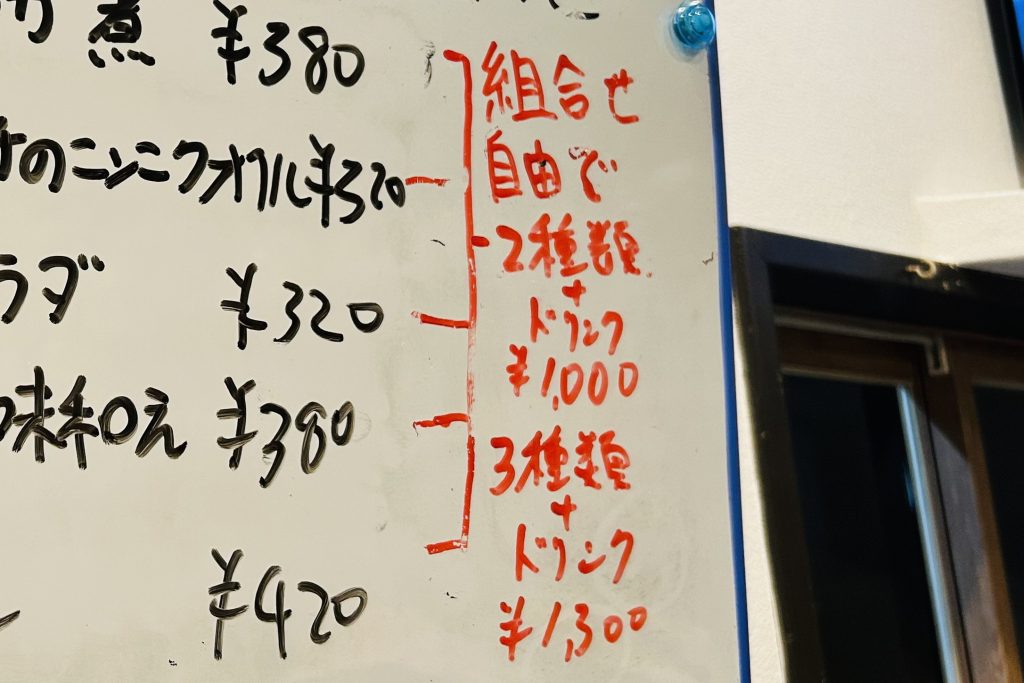 煮 ¥380
のニンニクオイル ¥320
ラダ ¥320
味和え ¥380
¥420
組合せ
自由で
2種類
+
ドリンク
¥1,000
3種類
+
ドリンク
¥1,300